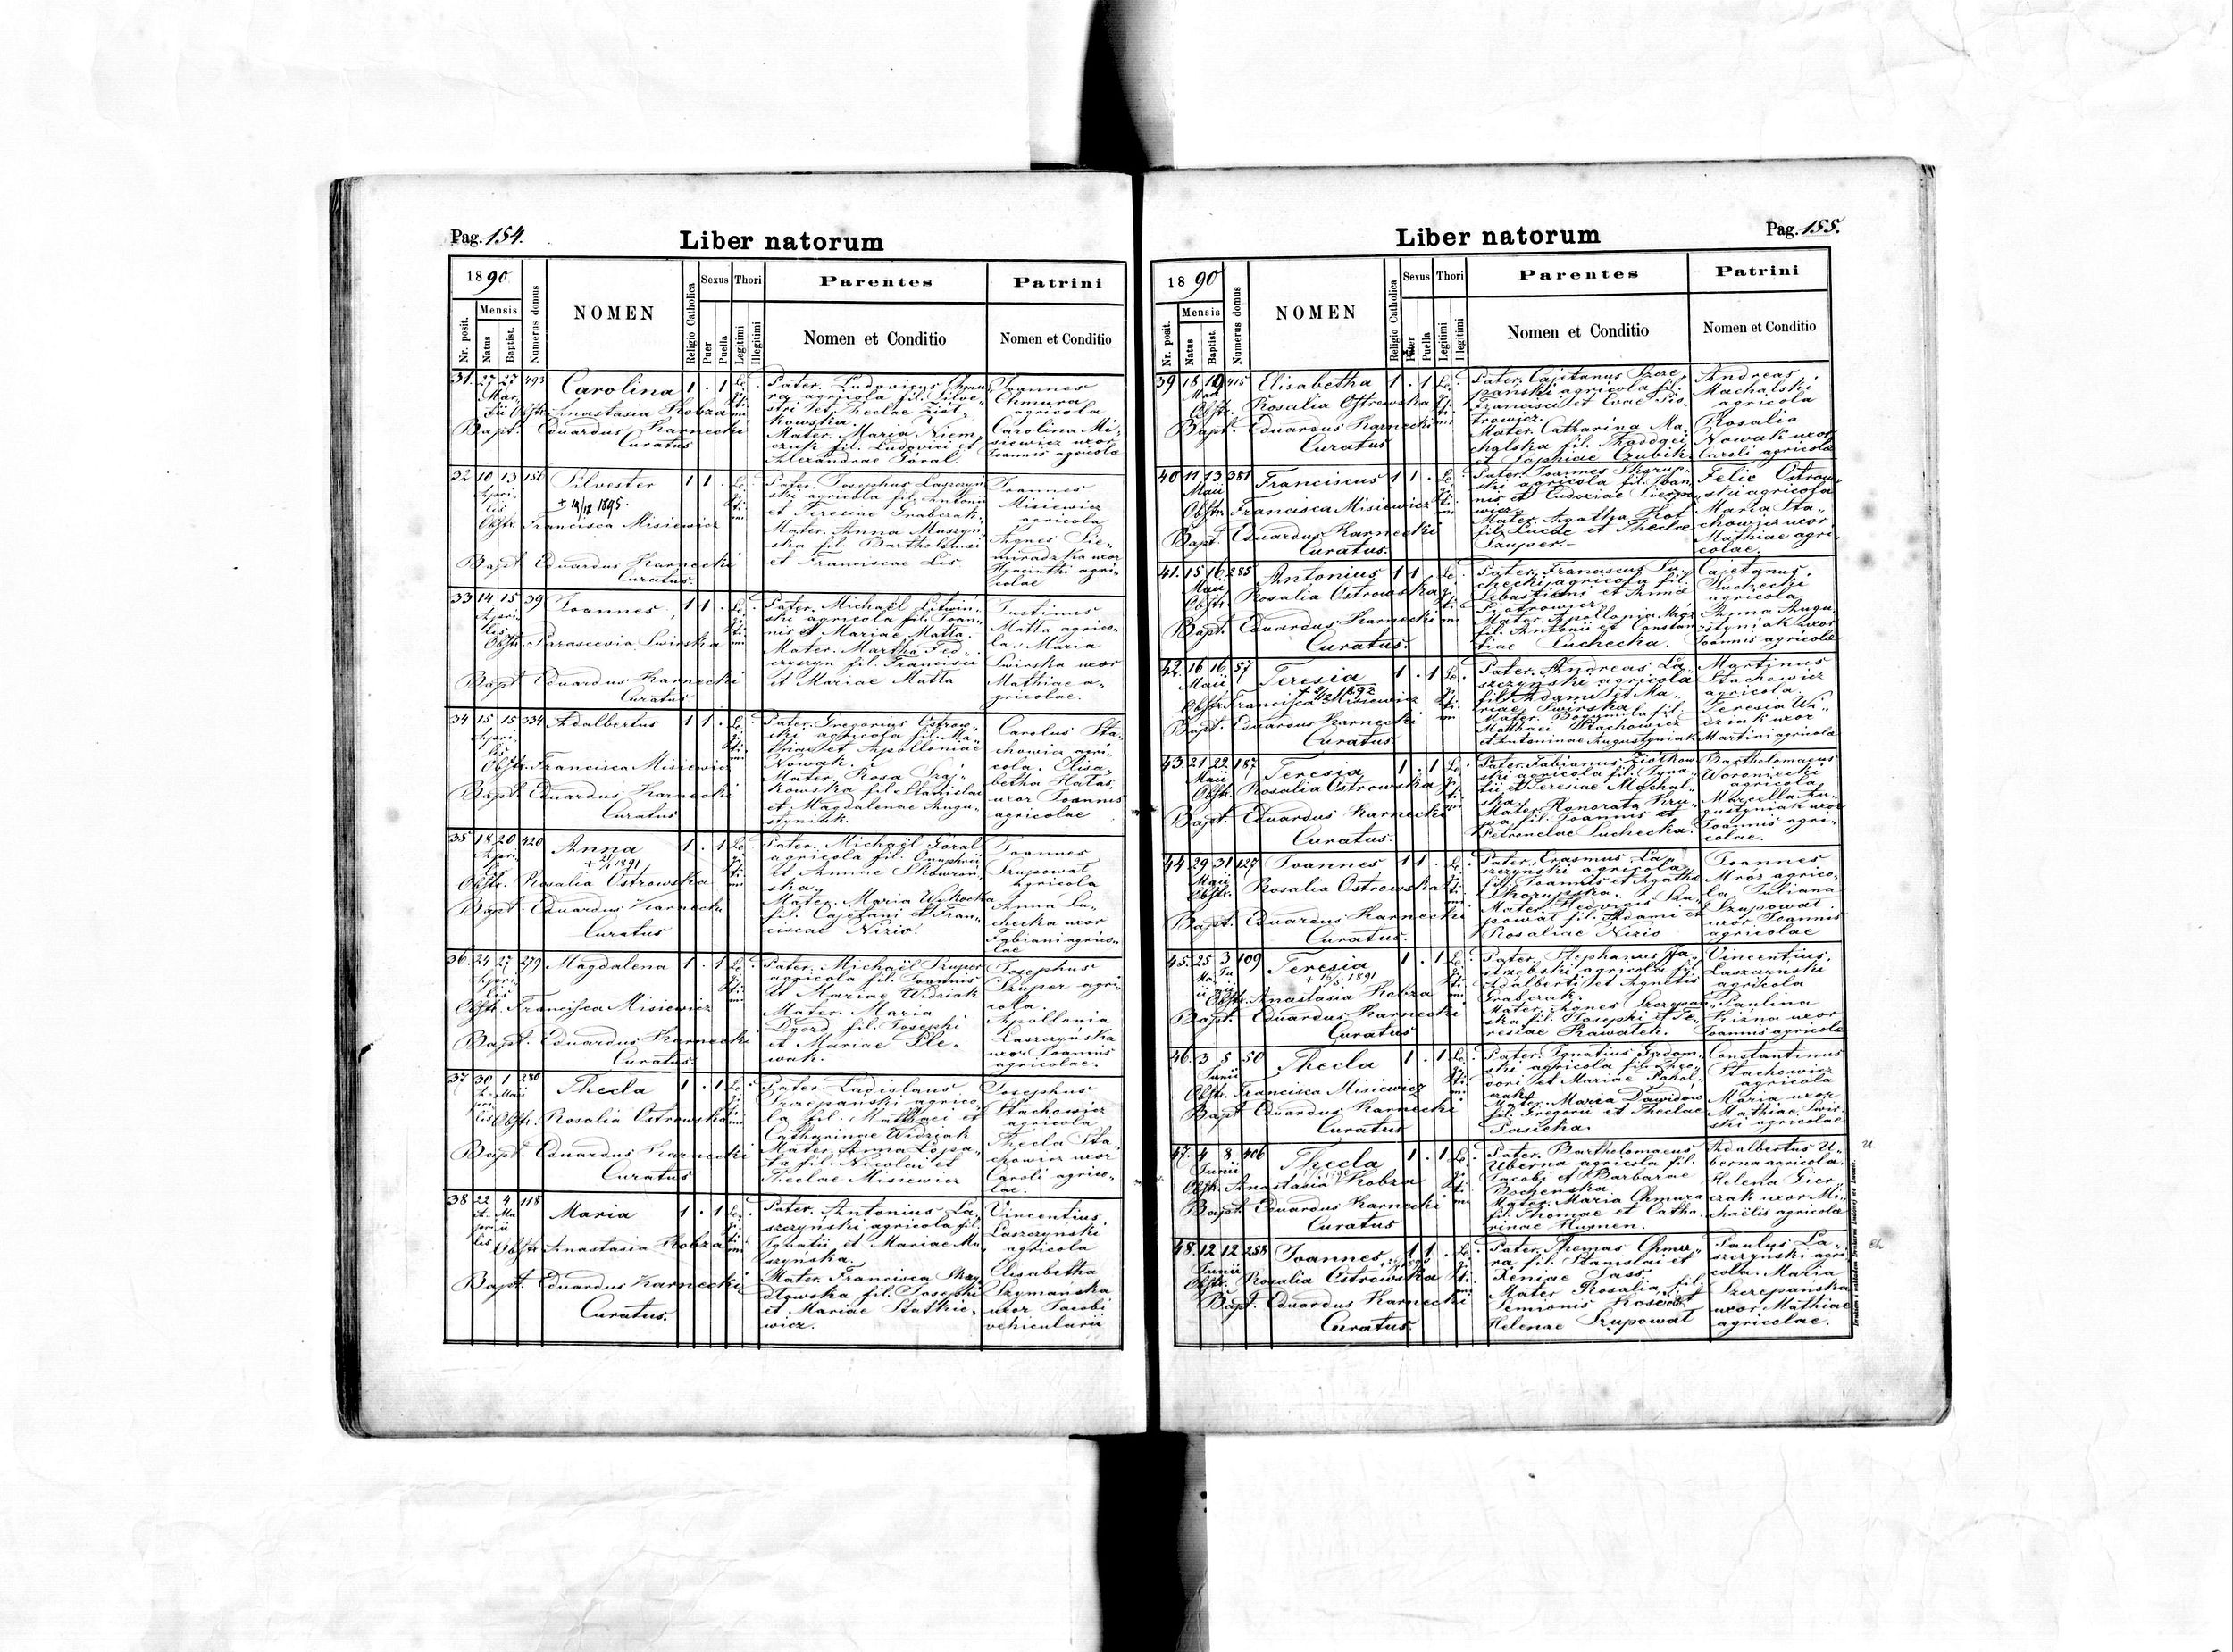 Pag. 154.
Liber natorum
1890
Nr. posit.
Mensis
Natus
Baptist.
Numerus domus
NOMEN
Religio Catholica
Sexus
Puer
Puella
Thori
Legitimi
Illegitimi
Parentes
Nomen et Conditio
Patrini
Nomen et Conditio
31. 27 27 493 Carolina 1 . 1
Obstr. Anastasia Kobza
Bapt. Eduardus Karnecki
Curatus
Pater. Ludovicus Chmu-
ra agricola fil. Silve-
stri et Theclae Ziół-
kowska.
Mater. Maria Niem-
czuk fil. Ludovici et
Alexandrae Góral.
Joannes
Chmura
agricola
Carolina Mi-
siewicz uxor
Joannis agricola
32 10 13 156 Silvester 1 1 .
Obstr. Francisca Misiewicz
Bapt. Eduardus Karnecki
Curatus
Pater. Josephus Laszczyń-
ski agricola fil. Antonii
et Teresiae Grabczak.
Mater. Anna Muszyń-
ska fil. Bartholomaei
et Franciscae Lis
Joannes
Misiewicz
agricola
Agnes Sie-
miradzka uxor
Hyacinthi agri-
colae
33 14 15 39 Joannes 1 1 .
Obstr. Parascevia Swirska
Bapt. Eduardus Karnecki
Curatus
Pater. Michaël Litwiń-
ski agricola fil. Joan-
nis et Mariae Matta.
Mater. Martha Fed-
czyszyn fil. Francisci
et Mariae Matta
Justinus
Matta agrico-
la. Maria
Swirska uxor
Mathiae a-
gricolae.
34 15 15 334 Adalbertus 1 1 .
Obstr. Francisca Misiewicz
Bapt. Eduardus Karnecki
Curatus
Pater. Gregorius Ostrow-
ski agricola fil. Ma-
thiae et Apolloniae
Nowak.
Mater. Rosa Szaj-
kowska fil. Stanislai
et Magdalenae Augu-
styniak.
Carolus Sta-
chowicz agri-
cola. Elisa-
betha Hałas
uxor Joannis
agricolae
35 18 20 420 Anna 1 . 1
Obstr. Rosalia Ostrowska
Bapt. Eduardus Karnecki
Curatus
Pater. Michaël Góral
agricola fil. Onuphrii
et Annae Skowroń-
ska.
Mater. Maria Wykocka
fil. Cajetani et Fran-
ciscae Nizio.
Joannes
Szupował
agricola
Anna Su-
checka uxor
Fabiani agrico-
lae
36. 24 27 279 Magdalena 1 . 1
Obstr. Francisca Misiewicz
Bapt. Eduardus Karnecki
Curatus.
Pater. Michaël Szuper
agricola fil. Joannis
et Mariae Widziak
Mater. Maria
fil. Josephi
et Mariae Ple-
wak.
Josephus
Szuper agri-
cola.
Apollonia
Laszczyńska
uxor Joannis
agricolae.
37 30 1 280 Thecla 1 . 1
Obstr. Rosalia Ostrowska
Bapt. Eduardus Karnecki
Curatus.
Pater. Ladislaus
Szczepański agrico-
la fil. Matthaei et
Catharinae Widziak
Mater. Anna Łopa-
ta fil. Nicolai et
Theclae Misiewicz
Josephus
Stachowicz
agricola
Thecla Sta-
chowicz uxor
Caroli agrico-
lae.
38 22 4 118 Maria 1 . 1
Obstr. Anastasia Kobza
Bapt. Eduardus Karnecki
Curatus.
Pater. Antonius La-
szczyński agricola fil.
Ignatii et Mariae Mu-
szyńska.
Mater. Francisca
fil. Josephi
et Mariae Statkie-
wicz.
Vincentius
Laszczyński
agricola
Elisabetha
Szymańska
uxor Jacobi
vehicularii
Liber natorum
Pag. 155.
1890
Nr. posit.
Mensis
Natus
Baptist.
Numerus domus
NOMEN
Religio Catholica
Sexus
Puer
Puella
Thori
Legitimi
Illegitimi
Parentes
Nomen et Conditio
Patrini
Nomen et Conditio
39 18 19 415 Elisabetha 1 . 1
Obstr. Rosalia Ostrowska
Bapt. Eduardus Karnecki
Curatus
Pater. Cajetanus Szcze-
pański agricola fil.
Francisci et Evae Pio-
trowicz.
Mater. Catharina Ma-
chalska fil. Thaddaei
et Sophiae Czubik
Andreas
Machalski
agricola
Rosalia
Nowak uxor
Caroli agricolae
40 11 13 381 Franciscus 1 1 .
Maii
Obstr. Francisca Misiewicz
Bapt. Eduardus Karnecki
Curatus.
Pater. Joannes
ski agricola fil. Joan-
nis et Eudoxiae
Mater. Agatha Kot
fil. Lucae et Theclae
Szuper.
Felix Ostrow-
ski agricola
Maria Sta-
chowicz uxor
Mathiae agri-
colae.
41. 15 16 285 Antonius 1 1 .
Maii
Obstr. Rosalia Ostrowska
Bapt. Eduardus Karnecki
Curatus.
Pater. Franciscus Su-
checki agricola fil.
Sebastiani et Annae
Piotrowicz
Mater. Apollonia Mróz
fil. Antonii et Constan-
tiae Suchecka.
Cajetanus
Suchecki
agricola
Anna Augu-
styniak uxor
Joannis agricolae
42. 16 16 57 Teresia 1 . 1
Maii
Obstr. Francisca Misiewicz
Bapt. Eduardus Karnecki
Curatus
Pater. Andreas La-
szczyński agricola
fil. Adami et Ma-
riae Swirska
Mater. fil.
Matthaei Stachowicz
et Antoninae Augustyniak
Martinus
Stachowicz
agricola.
Teresia Wi-
dziak uxor
Martini agricolae
43 21 22 187 Teresia 1 . 1
Maii
Obstr. Rosalia Ostrowska
Bapt. Eduardus Karnecki
Curatus.
Pater. Fabianus Ziółkow-
ski agricola fil. Igna-
tii et Teresiae Machal-
ska.
Mater. Honorata Kru-
pa fil. Joannis et
Petronelae Suchecka.
Bartholomaeus
Woroniecki
agricola
Marcella Au-
gustyniak uxor
Joannis agri-
colae.
44 29 31 127 Joannes 1 1 .
Maii
Obstr. Rosalia Ostrowska
Bapt. Eduardus Karnecki
Curatus.
Pater. Erasmus La-
szczyński agricola
fil. Joannis et Agathae
Mater. Hedvigis Szu-
pował fil. Adami et
Rosaliae Nizio
Joannes
Mróz agrico-
la. Juliana
Szupował
uxor Joannis
agricolae
45. 25 3 109 Teresia 1 . 1
+ 16/5 1891
Obstr. Anastasia Kobza
Bapt. Eduardus Karnecki
Curatus
Pater. Stephanus Ja-
strzębski agricola fil.
Adalberti et Agnetis
Grabczak.
Mater. Agnes Szczepań-
ska fil. Josephi et Te-
resiae Kawałek.
Vincentius
Laszczyński
agricola
Paulina
uxor
Joannis agricolae
46. 3 5 50 Thecla 1 . 1
Junii
Obstr. Francisca Misiewicz
Bapt. Eduardus Karnecki
Curatus
Pater. Ignatius Gadom-
ski agricola fil. Theo-
dori et Mariae
Mater. Maria Dawidow
fil. Gregorii et Theclae
Pasieka.
Constantinus
Stachowicz
agricola
Maria uxor
Mathiae Swir-
ski agricolae
47. 4 8 406 Thecla 1 . 1
Junii
Obstr. Anastasia Kobza
Bapt. Eduardus Karnecki
Curatus
Pater. Bartholomaeus
Uberna agricola fil.
Jacobi et Barbarae
Bocheńska
Mater. Maria Chmura
fil. Thomae et Catha-
rinae Humen.
Adalbertus U-
berna agricola.
Helena Gier-
czak uxor Mi-
chaëlis agricolae
48. 12 12 258 Joannes 1 1 .
Junii
Obstr. Rosalia Ostrowska
Bapt. Eduardus Karnecki
Curatus.
Pater. Thomas Chmu-
ra, fil. Stanislai et
Xeniae Sass
Mater Rosalia, fil.
Semionis et
Helenae Szupował
Paulus La-
szczyński agri-
cola. Maria
Szczepańska
uxor Mathiae
agricolae.